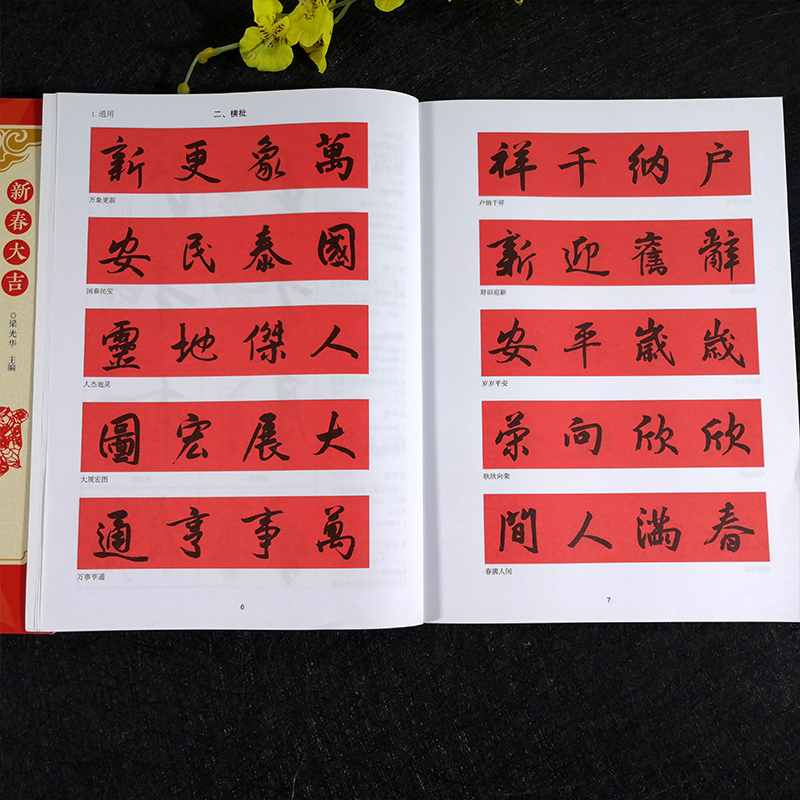 新春大吉
◎梁光华 主编
1. 通用
二、横批
萬象更新
万象更新
國泰民安
国泰民安
人傑地靈
人杰地灵
大展宏圖
大展宏图
萬事亨通
万事亨通
6
户納千祥
户纳千祥
辭舊迎新
辞旧迎新
歲歲平安
岁岁平安
欣欣向荣
欣欣向荣
春满人間
春满人间
7